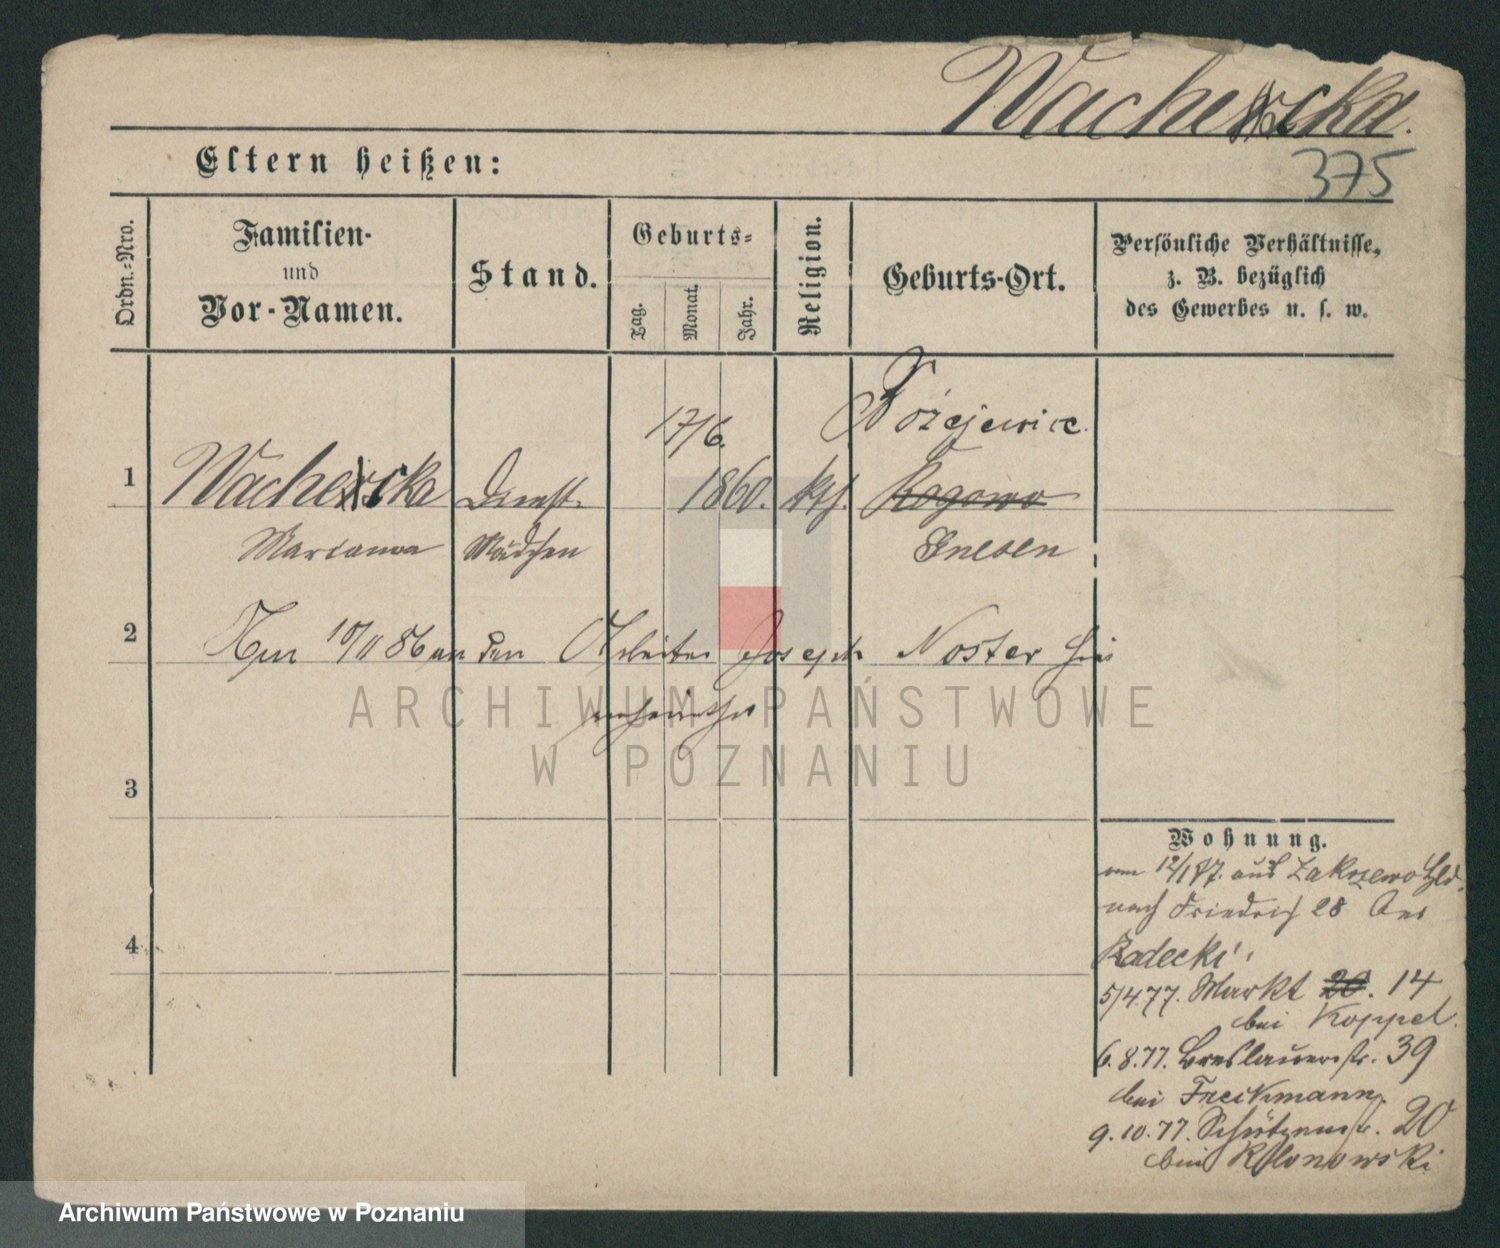 Wacherska.
375
Eltern heißen:
Ordn.-Nro.
Familien-
und
Vor-Namen.
Stand.
Geburts-
Tag.
Monat.
Jahr.
Religion.
Geburts-Ort.
Persönliche Verhältnisse,
z. B. bezüglich
des Gewerbes u. s. w.
17/6.
1 Dienst 1860. kth. Rogowo
Marianna Mädchen Gnesen
2 10/11 86 an den Arbeiter Joseph Noster hier
verheirathet
3
4
Wohnung.
vom 12/1 77. aus Zakrzewo
nach Friedrich 28
Radecki
5/4 77. Markt 20. 14
bei Koppel.
6.8.77. Breslauerstr. 39
bei Freikmann
9.10.77. Schützenstr. 20
bei
ARCHIWUM PAŃSTWOWE
W POZNANIU
Archiwum Państwowe w Poznaniu